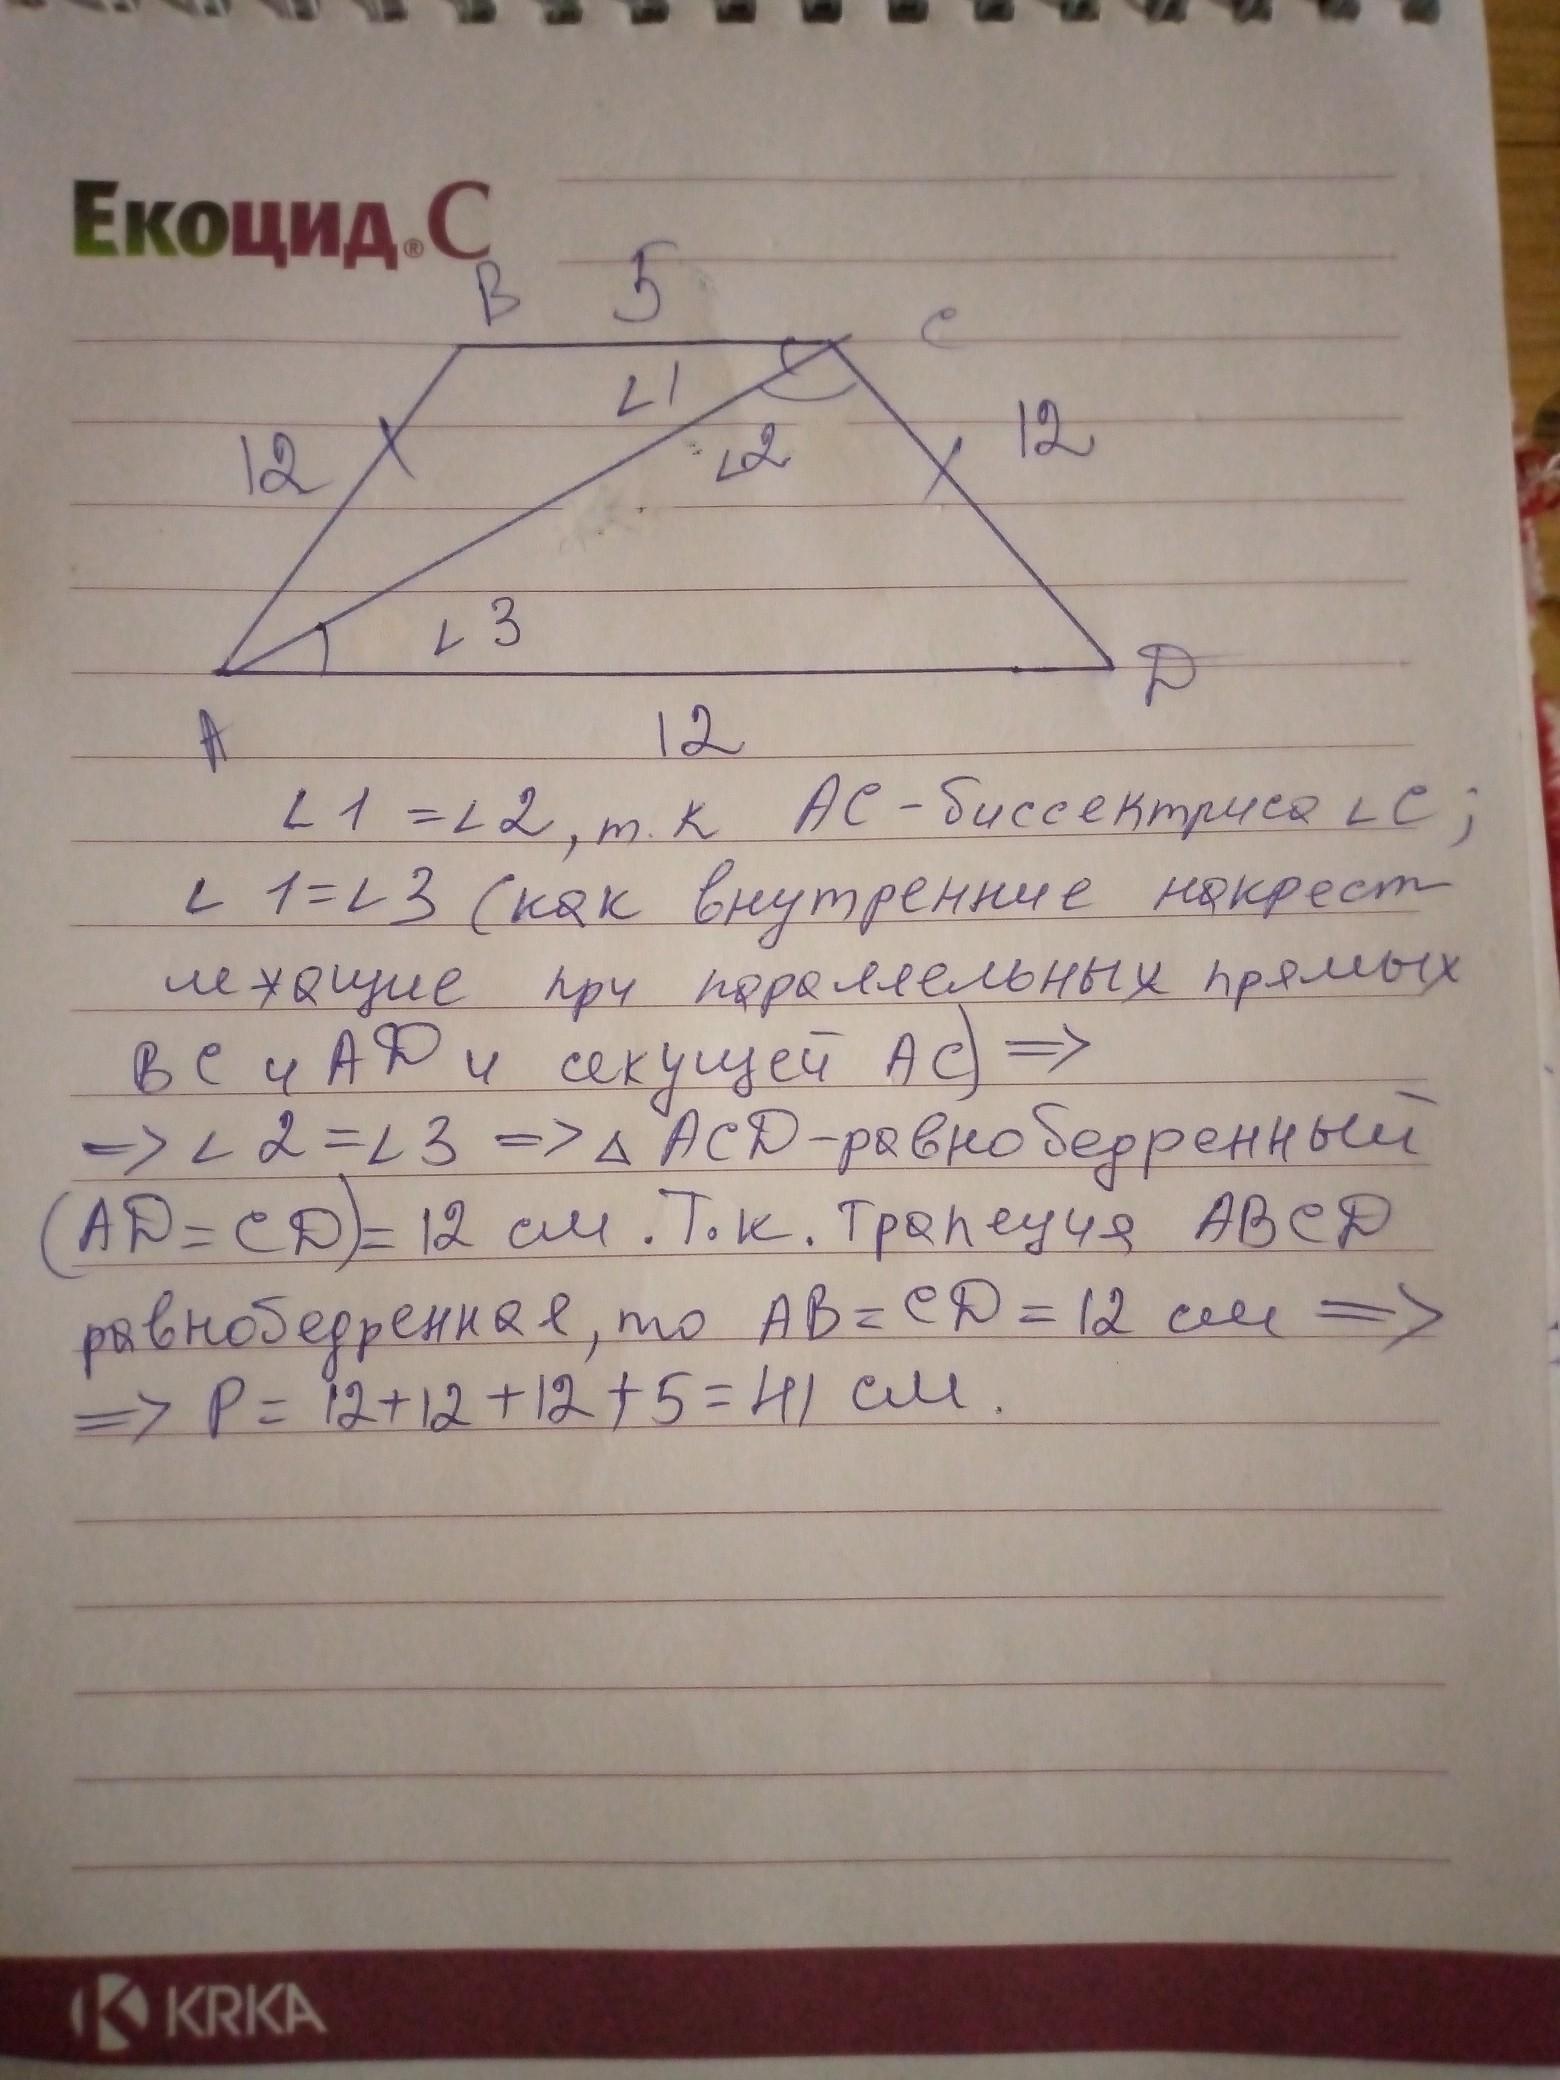 Екоцид® С
B 5 C
∠1
12 ∠2 12
∠3
A 12 D
∠1 = ∠2, т.к AC - биссектриса ∠C;
∠1 = ∠3 (как внутренние накрест
лежащие при параллельных прямых
BC и AD и секущей AC) =>
=> ∠2 = ∠3 => △ ACD - равнобедренный
(AD = CD) = 12 см. Т.к. трапеция ABCD
равнобедренная, то AB = CD = 12 см =>
=> P = 12 + 12 + 12 + 5 = 41 см.
KRKA